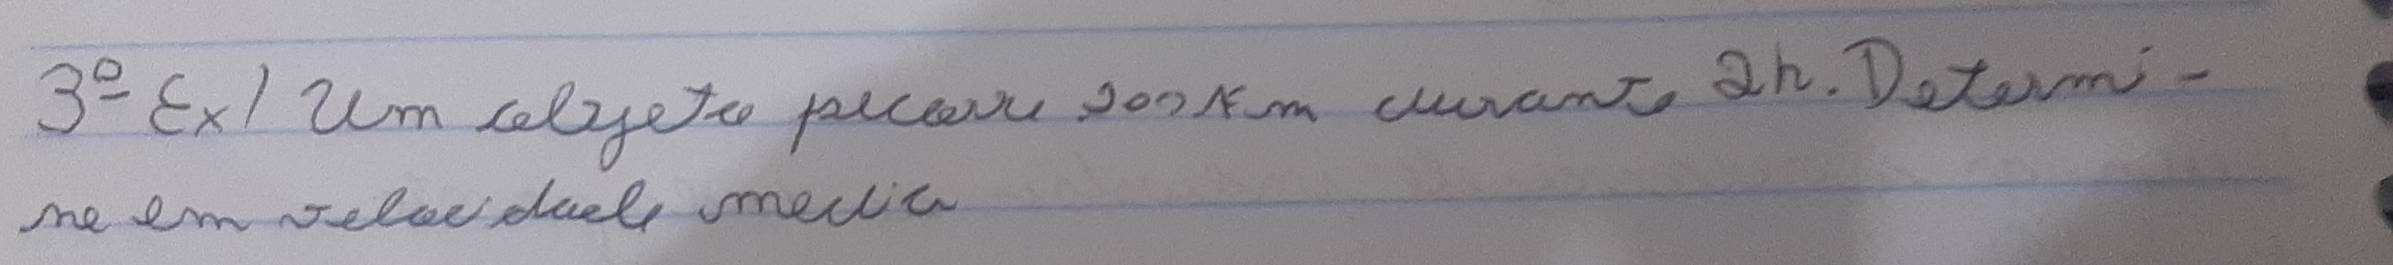 3º Ex/ Um objeto percorre 200 Km durante 2h. Determi-
ne em velocidade media